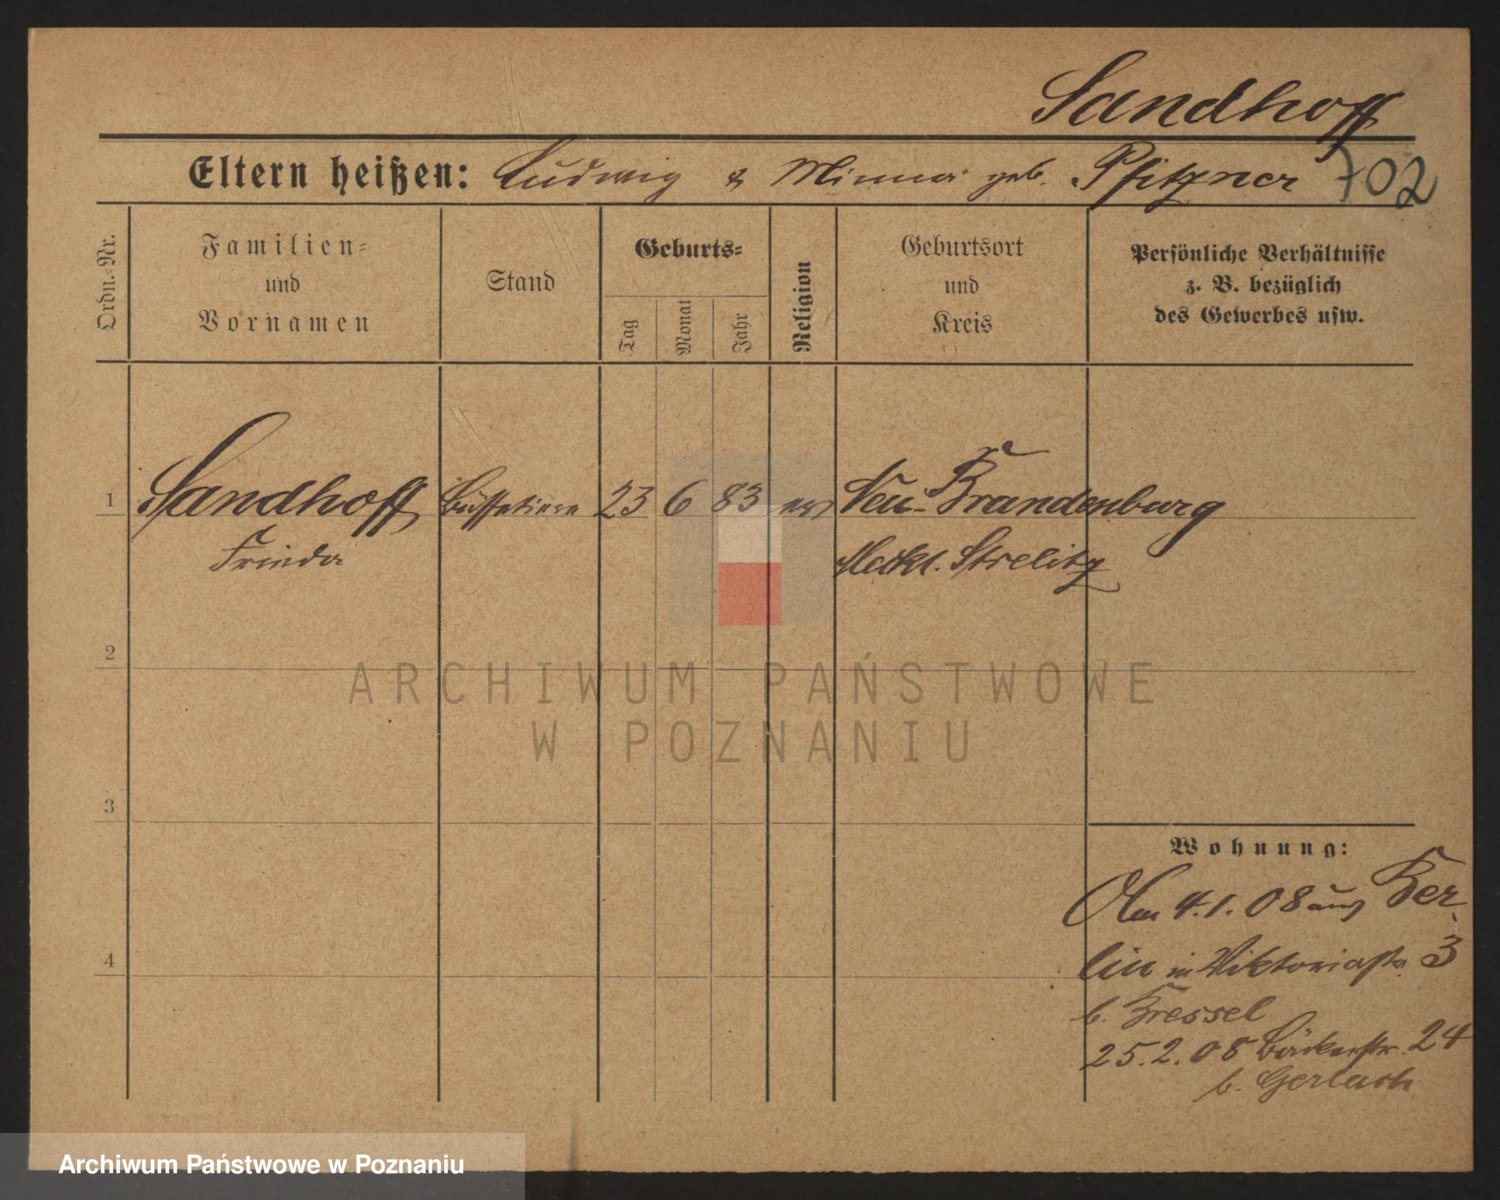 Sandhoff
Eltern heißen: Ludwig & Minna geb. Pfitzner 702
Ordn.-Nr.
Familien-
und
Vornamen
Stand
Geburts-
Tag
Monat
Jahr
Religion
Geburtsort
und
Kreis
Persönliche Verhältnisse
z. B. bezüglich
des Gewerbes usw.
1 Sandhoff Büffetiere 23 6 83 ev Neu-Brandenburg
Frieda Meckl. Strelitz
2
3
4
ARCHIWUM PAŃSTWOWE
W POZNANIU
Wohnung:
Am 4.1.08 aus Ber-
lin in Viktoriastr. 3
b. Kressel
25.2.08 Bäckerstr. 24
b. Gerlach
Archiwum Państwowe w Poznaniu